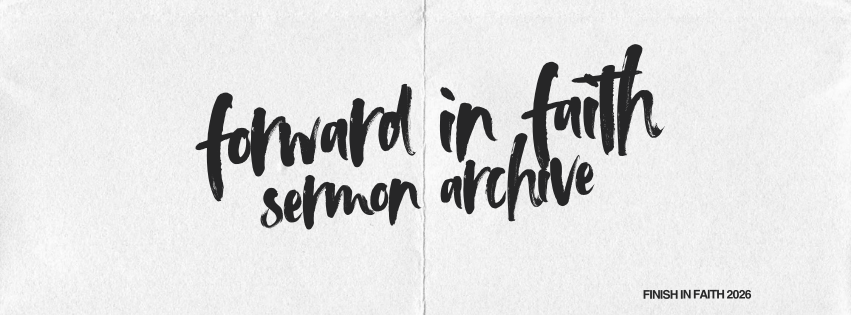 forward in faith
sermon archive
FINISH IN FAITH 2026